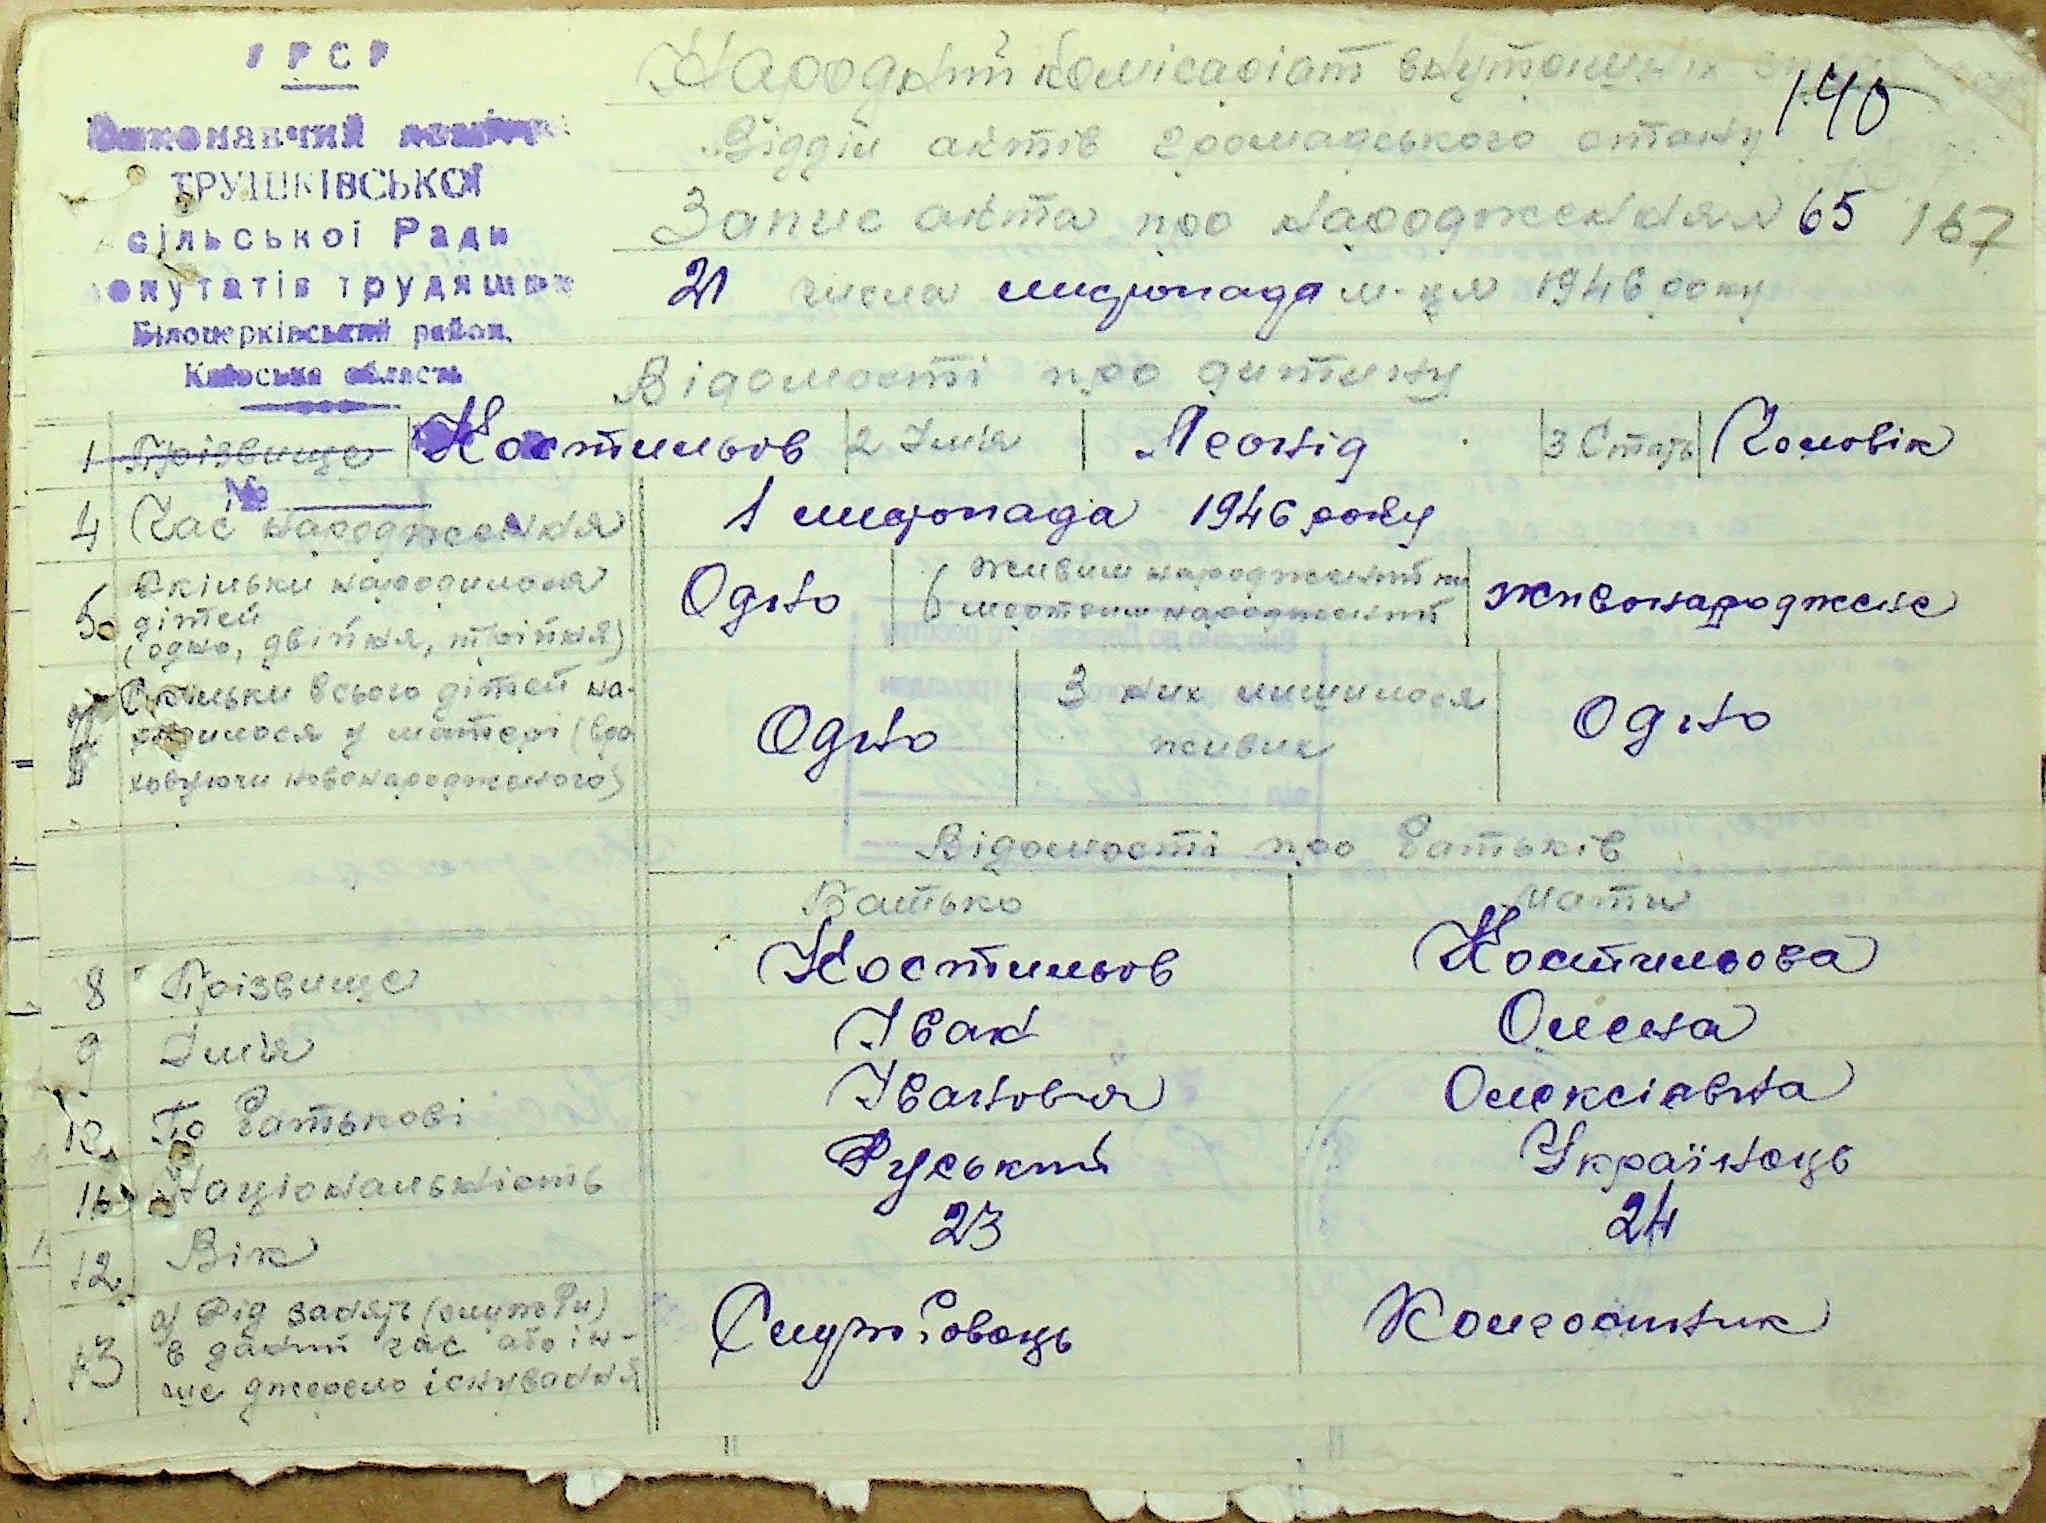 УРСР
Виконавчий комітет
ТРУШКІВСЬКОЇ
сільської Ради
депутатів трудящих
Білоцерківський район,
Київська область
№
Народний комісаріат внутрішніх
140
Відділ актів громадського стану
Запис акта про народження 65 167
21 числа листопада м-ця 1946 року
Відомості про дитину
1 Прізвище Костильов 2 Імія Леонід 3 Стать Чоловік
4 Час народження 1 листопада 1946 року
5 Скільки народилося дітей (одно, двійня, трійня) Одно 6 Живим народжений чи мертвим народжений живонароджене
7 Скільки всього дітей народилося у матері (враховуючи новонародженого) Одно З них лишилося живих Одно
Відомості про батьків
Батько Мати
8 Прізвище Костильов Костильова
9 Імія Іван Олена
10 По батькові Іванович Олексіевна
11 Національність Руський Українець
12 Вік 23 24
13 а) Рід занять (служби) в даний час або інше джерело існування Службовець Колгоспник